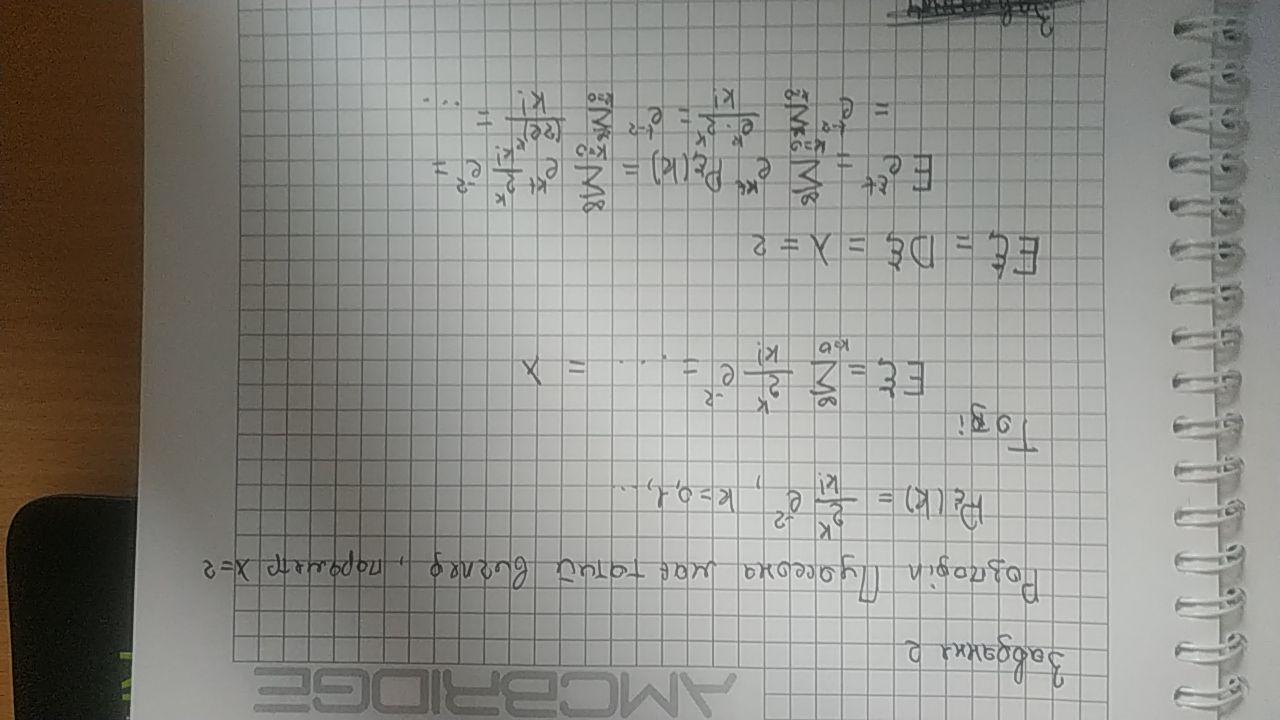 AMCBRIDGE
Завдання 2
Розподіл Пуассона має такий вигляд, параметр λ=2
P_ξ(k) = 2^k/k! e^{-2}, k=0,1,...
Тоді
Eξ = ∑_{k=0}^{∞} 2^k/k! e^{-2} = .... = λ
Eξ = Dξ = λ = 2
E e^{ξt} = ∑_{k=0}^{∞} e^{kt} P_ξ(k) = ∑_{k=0}^{∞} e^{kt} 2^k/k! e^{-2} =
= e^{t-2} ∑_{k=0}^{∞} e^k · 2^k/k! = e^{t-2} ∑_{k=0}^{∞} (2e)^k/k! = ...